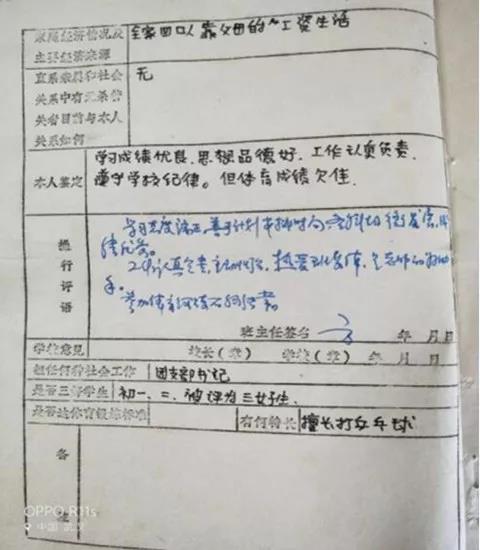 家庭经济情况及
主要经济来源
全家四口靠父母的工资生活
直系亲属和社会
关系中有无杀管
关者目前与本人
关系如何
无
本人鉴定
学习成绩优良、思想品德好、工作认真负责、
遵守学校纪律。但体育成绩欠佳.
操行评语
学习态度端正,善于计划安排时间,各科均衡发展,成
绩优秀。
工作认真负责,主动大胆,热爱班集体,是老师的好助
手。
参加体育训练不够经常。
班主任签名
年 月 日
学校意见
校长(章) 学校(章) 年 月 日
担任何种社会工作
团支部书记
是否三好学生
初一、二、被评为三好生.
是否达体育锻炼标准
有何特长
擅长打乒乓球
备
OPPO R11s
中国·武汉